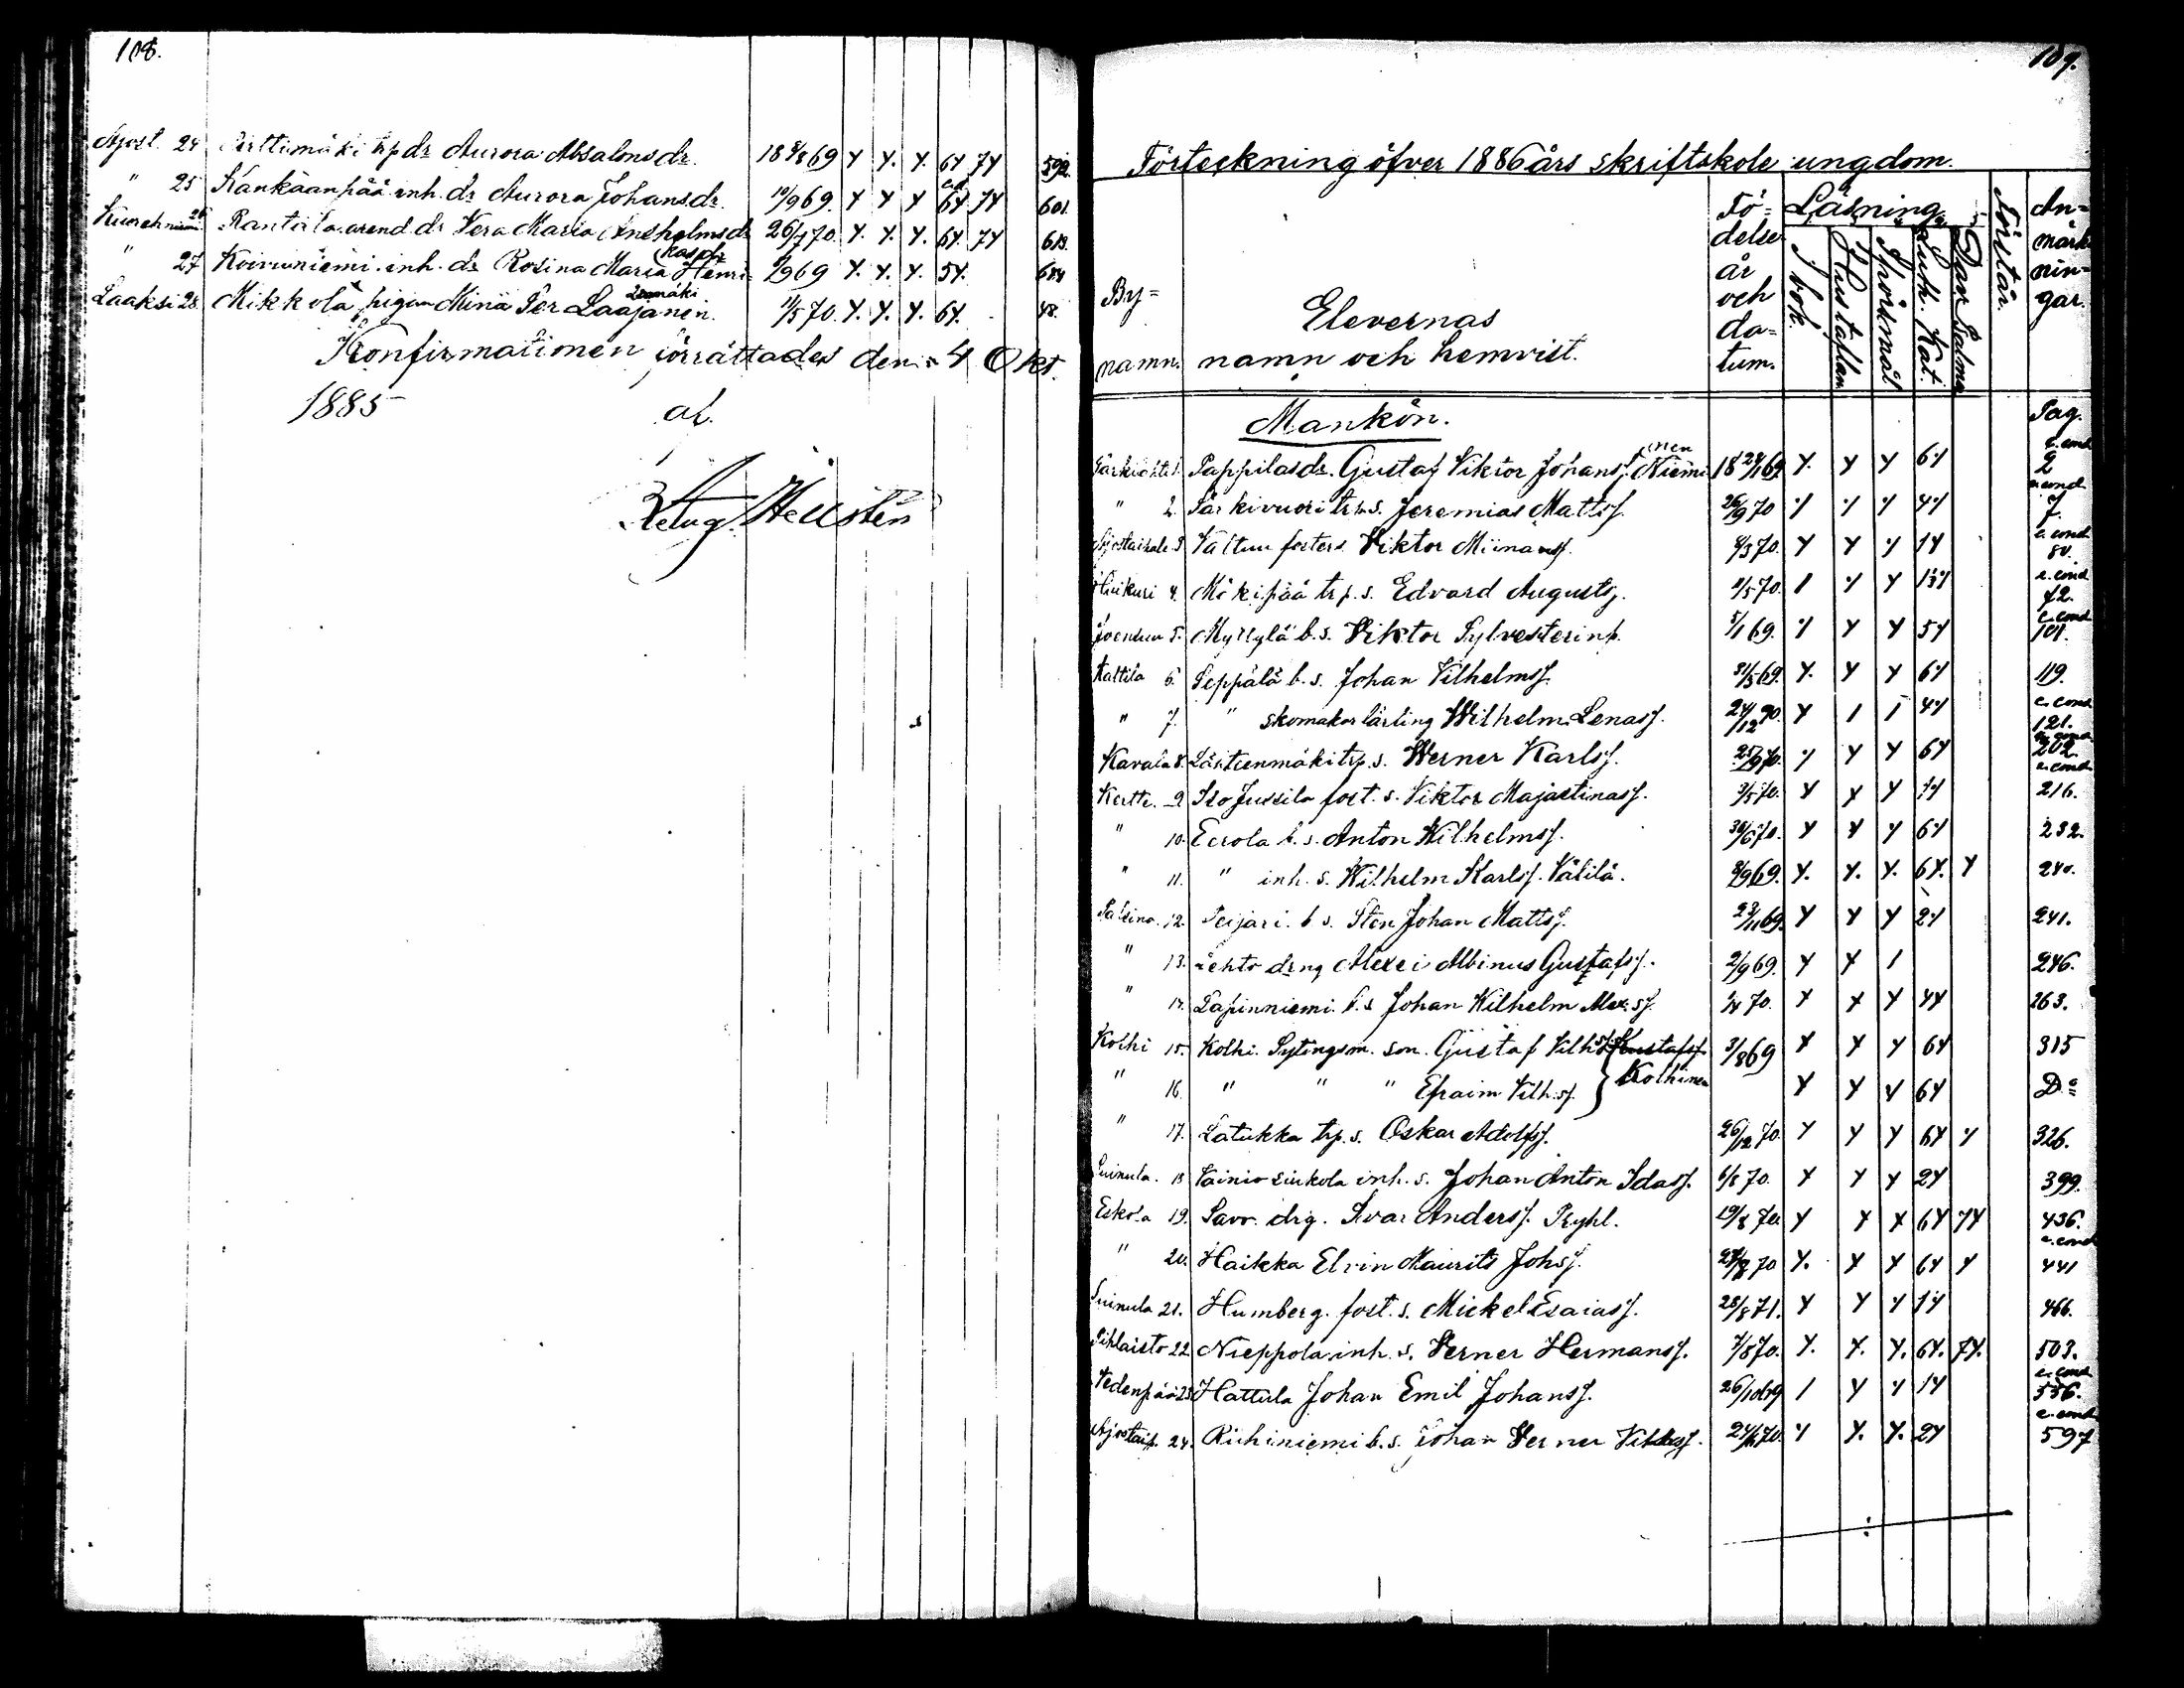 108.
24 trp dr Aurora Absalonsdr. 18 8/8 69 Y Y. Y. 6Y 7Y 592
" 25 Kankaanpää inh. dr Aurora Johansdr. 10/9 69. Y Y Y 6Y 7Y 601
26 Rantala arend. dr Vera Maria Anshelmsdr 26/7 70. Y. Y. Y. 6Y. 7Y 613
" 27 Koivuniemi inh. dr Rosina Maria Henri 69 Y. Y. Y. 5Y.
Laaksi 28. Mikkola pigan Mina Per Laajanen. 11/5 70. Y. Y. Y. 6Y. 48.
Konfirmationen förrättades den 4 Okt.
1885 af.
Hellsten
109.
Förteckning öfver 1886 års skriftskole ungdom.
By=
namn.
Elevernas
namn och hemvist.
Fö=
delse
år
och
da=
tum.
Läsning
I bok.
Hustaflan
Spörsmål
Luth. Kat.
Dav. Psalmer
Förstår.
An=
märk
nin=
gar.
Mankön.
Pag.
1. Pappilas dr. Gustaf Viktor Johansf. Niemi nen 18 69 Y. Y Y 6Y c. cond 2
" 2. Särkivuori trp.s. Jeremias Mattsf. 26/9 70 Y Y Y 4Y c. cond 7.
3 Valtuu fosters. Viktor Miinasf. 70. Y Y Y 1Y c. cond 80.
4. Mäkipää trp. s. Edvard Augustsf. 1/5 70. 1 Y Y c. cond 42.
Joensuu 5. Myllylä b. s. Viktor Sylvesterinp. 5/1 69. Y Y Y 5Y c. cond 101.
Kaltila 6. Seppälä b. s. Johan Vilhelmsf. 31/5 69. Y. Y Y 6Y 119.
" 7. " skomakar lärling Wilhelm Lenasf. 24/12 70. Y 1 1 4Y c. cond 121.
Kavala 8. trp. s. Werner Karlsf. 70. Y Y Y 6Y 202.
Kertte. 9 Iso Jussila fost. s. Viktor Majastinasf. 3/5 70. Y Y Y 1Y c. cond 216.
" 10. Eerola b. s. Anton Wilhelmsf. 30/6 70. Y Y Y 6Y 232.
" 11. " inh. s. Wilhelm Karlsf. Välilä. 69. Y. Y. Y. 6Y. Y 240.
12. Peijari. b s. Sten Johan Mattsf. 23/11 69. Y Y Y 2Y 241.
" 13. Lehto drng Alexei Albinus Gustafsf. 2/9 69. Y Y 1 246.
" 14. Lapinniemi. b. s Johan Wilhelm Alex. sf. 70. Y Y Y 4Y 263.
Kolhi 15. Kolhi. Sytingsm. son. Gustaf Vilh sf. Gustafsf. 3/8 69 Y Y Y 6Y 315
" 16. " " " Efraim Vilh. sf. } Kolhinen Y Y Y 6Y Do
" 17. Latukka trp. s. Oskar Adolfsf. 26/12 70. Y Y Y 6Y Y 326.
Suinula. 18 Vainio siukola inh. s. Johan Anton Idasf. 6/8 70. Y Y Y 2Y 399.
Eskola 19. Savo. drg. Ivar Andersf. Ryhl. 19/8 70. Y Y Y 6Y 7Y 436.
" 20. Haikka Elvin Maurits Johsf. 70 Y. Y Y 6Y Y c. cond 441
Suinula 21. Humberg. fost. s. Mickel Esaiasf. 28/8 71. Y Y Y 1Y 466.
Pihlaisto 22 Nieppola inh. s. Verner Hermansf. 7/8 70. Y. Y. Y. 6Y. 7Y. 503.
Vedenpää 23 Hattula Johan Emil Johansf. 26/10 69 1 Y Y 1Y c. cond 556.
24. Riihiniemi b. s. Johan Verner 70. Y Y. Y. 2Y c. cond 597